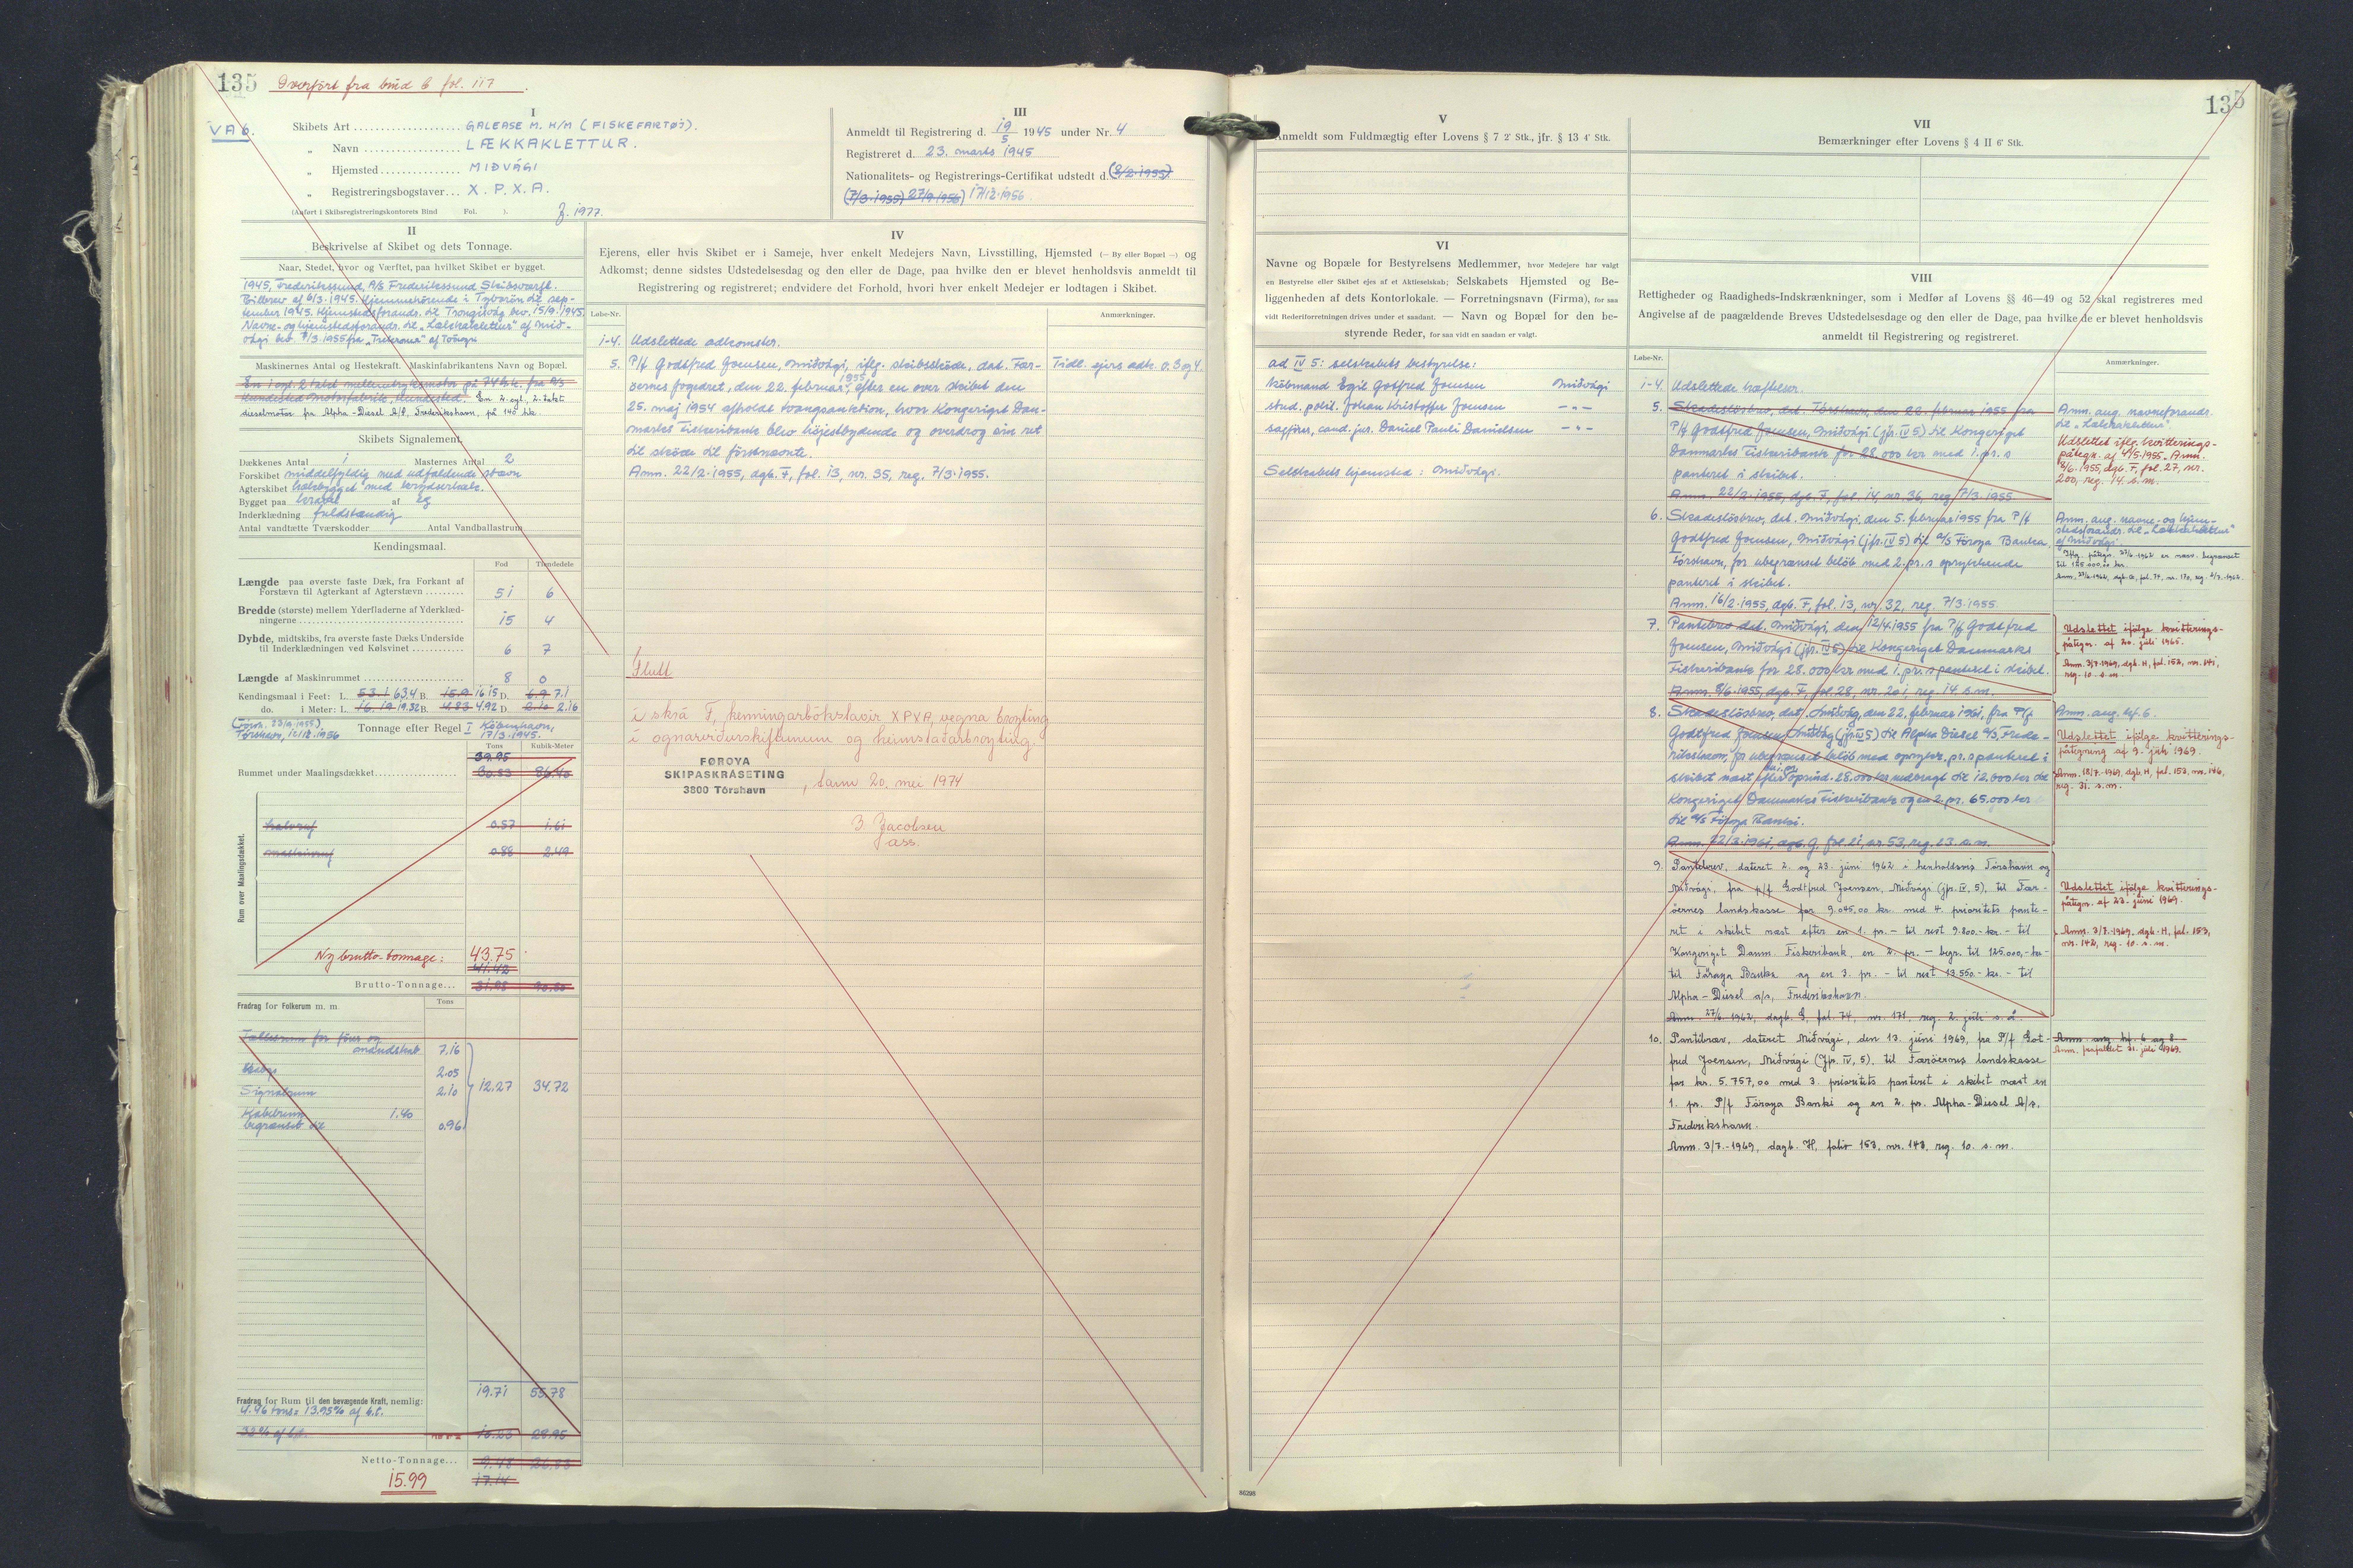 135 Overført fra bind 6 fol. 117.
VA 6.
I
Skibets Art GALEASE M. H/M (FISKEFARTØJ).
„ Navn LÆKKAKLETTUR.
„ Hjemsted MIÐVÁGI
„ Registreringsbogstaver X. P. X. A.
(Anført i Skibsregistreringskontorets Bind Fol. ).
J. 1977.
III
Anmeldt til Registrering d. 19/5 1945 under Nr. 4
Registreret d. 23. marts 1945
Nationalitets- og Registrerings-Certifikat udstedt d. (8/2-1955)
(7/3-1955) 27/9 1956) 17/12-1956.
II
Beskrivelse af Skibet og dets Tonnage.
Naar, Stedet, hvor og Værftet, paa hvilket Skibet er bygget.
1945, Frederikssund, A/S Frederikssund Skibsværft.
Bilbrev af 6/3-1945. Hjemmehørende i Tyborön til sep-
tember 1945. Hjemstedsforandr. til Trongisvåg bev. 15/9-1945.
Navne- og hjemstedsforandr. til „Lækkaklettur" af Mid-
vági bev. 7/3-1955 fra „Trekronur" af
Maskinernes Antal og Hestekraft. Maskinfabrikantens Navn og Bopæl.
En 1 cyl. 2 takt mellemtryksmotor på 74 hk. fra A/S
Hundested Motorfabrik, Hundested. En 2. cyl., 2. takt
dieselmotor fra Alpha-Diesel A/S, Frederikshavn, på 140 hk.
Skibets Signalement.
Dækkenes Antal 1 Masternes Antal 2
Forskibet middelfyldig med udfaldende stævn
Agterskibet halvbygget med krydserhæk.
Bygget paa kravel af eg
Inderklædning fuldstændig
Antal vandtætte Tværskodder Antal Vandballastrum
Kendingsmaal.
Fod Tiendedele
Længde paa øverste faste Dæk, fra Forkant af
Forstævn til Agterkant af Agterstævn 51 6
Bredde (største) mellem Yderfladerne af Yderklæd-
ningerne 15 4
Dybde, midtskibs, fra øverste faste Dæks Underside
til Inderklædningen ved Kølsvinet 6 7
Længde af Maskinrummet 8 0
Kendingsmaal i Feet: L. 53.1 63.4 B. 15.9 16.15 D. 6.9 7.1
do. i Meter: L. 16.19 19.32 B. 4.83 4.92 D. 2.10 2.16
(Tórsh., 23/9-1955).
Tórshavn, 12/12-1956
Tonnage efter Regel I København,
17/3-1945.
Tons Kubik-Meter
39.95
Rummet under Maalingsdækket 30.53 86.40
Rum over Maalingsdækket.
halvruf 0.57 1.61
maskinruf 0.88 2.49
Ny brutto-tonnage: 43.75
41.42
Brutto-Tonnage 31.98 90.50
Fradrag for Folkerum m. m.
Tons
Lukaf for fører og
mandskab 7.16
2.05
Signalrum 2.10
Kabelrum 1.40
begrænset til 0.96
12.27 34.72
19.71 55.78
Fradrag for Rum til den bevægende Kraft, nemlig:
4.46 tons = 13.95% af b.t.
32% af b.t. 10.23 28.95
Netto-Tonnage 9.48 26.83
15.99 17.14
IV
Ejerens, eller hvis Skibet er i Sameje, hver enkelt Medejers Navn, Livsstilling, Hjemsted (— By eller Bopæl —) og
Adkomst; denne sidstes Udstedelsesdag og den eller de Dage, paa hvilke den er blevet henholdsvis anmeldt til
Registrering og registreret; endvidere det Forhold, hvori hver enkelt Medejer er lodtagen i Skibet.
Løbe-Nr. Anmærkninger.
1-4. Udslettede adkomster.
5. P/f Godtfred Joensen, Miðvági, iflg. skibsskøde, dat. Fær- Tidl. ejers adk. o. 3 og 4
øernes fogedret, den 22. februar 1955, efter en over skibet den
25. maj 1954 afholdt tvangsauktion, hvor Kongeriget Dan-
marks Fiskeribank blev højestbydende og overdrog sin ret
til skøde til førstnævnte.
Anm. 22/2-1955, dgb. F, fol. 13, nr. 35, reg. 7/3-1955.
Flutt
í skrá F, kenningarbókstavir XPVA, vegna broyting
í ognarviðurskiftunum og heimstaðarbroyting.
FØROYA
SKIPASKRÁSETING
3800 Tórshavn
, tann 20. mei 1974
J. Jacobsen
ass.
135
V
Anmeldt som Fuldmægtig efter Lovens § 7 2' Stk., jfr. § 13 4' Stk.
VI
Navne og Bopæle for Bestyrelsens Medlemmer, hvor Medejere har valgt
en Bestyrelse eller Skibet ejes af et Aktieselskab; Selskabets Hjemsted og Be-
liggenheden af dets Kontorlokale. — Forretningsnavn (Firma), for saa
vidt Rederiforretningen drives under et saadant. — Navn og Bopæl for den be-
styrende Reder, for saa vidt en saadan er valgt.
ad IV 5: selskabets bestyrelse:
Købmand Egil Godtfred Joensen Miðvági
stud. polit. Johan Kristoffer Joensen — „ —
sagfører, cand. jur. Daniel Pauli Danielsen — „ —
Selskabets hjemsted: Miðvági.
86298
VII
Bemærkninger efter Lovens § 4 II 6' Stk.
VIII
Rettigheder og Raadigheds-Indskrænkninger, som i Medfør af Lovens §§ 46—49 og 52 skal registreres med
Angivelse af de paagældende Breves Udstedelsesdage og den eller de Dage, paa hvilke de er blevet henholdsvis
anmeldt til Registrering og registreret.
Løbe-Nr. Anmærkninger.
1-4. Udslettede hæftelser.
5. Skadesløsbrev, dat. Tórshavn, den 28. februar 1955 fra
P/f Godtfred Joensen, Miðvági (jfr. IV 5) til Kongeriget
Danmarks Fiskeribank for 28.000 kr med 1. pr.s
panteret i skibet.
Anm. 22/2-1955, dgb. F, fol. 14, nr. 36, reg. 7/3-1955
Anm. ang. navneforandr.
til „Lækkaklettur".
Udslettet iflg. kvitterings-
påtegn. af 4/5-1955. Anm.
8/6-1955, dgb. F, fol. 27, nr.
200, reg. 14. s.m.
6. Skadesløsbrev, dat. Miðvági, den 5. februar 1955 fra P/f
Godtfred Joensen, Miðvági (jfr. IV 5) til A/S Føroya Banka,
Tórshavn, for ubegrænset beløb med 2. pr.s oprykkende
panteret i skibet.
Anm. 16/2-1955, dgb. F, fol. 13, nr. 32, reg. 7/3-1955.
Anm. ang. navne- og hjem-
stedsforandr. til „Lækkaklettur"
af Miðvági.
Iflg. påtegn. 23/6-1962 er nærv. begrænset
til 125.000,00 kr.
7. Pantebrev dat. Miðvági, den 12/4-1955 fra P/f Godtfred
Joensen, Miðvági (jfr. IV 5) til Kongeriget Danmarks
Fiskeribank for 28.000 kr med 1. pr.s panteret i skibet.
Anm. 8/6-1955, dgb. F, fol. 28, nr. 201, reg. 14 s.m.
Udslettet ifølge kvitterings-
påtegn. af 20. juli 1965.
Anm. 3/7-1969, dgb. H, fol. 153, nr. 141,
reg. 10. s.m.
8. Skadesløsbrev, dat. Miðvág, den 22. februar 1961, fra P/f
Godtfred Joensen, Miðvág (jfr. IV 5) til Alpha Diesel A/S, Frede-
rikshavn, for ubegrænset beløb med oprykk. pr.s panteret i
skibet næst efter oprind. 28.000 kr nedbragt til 12.000 kr til
Kongeriget Danmarks Fiskeribank og en 2. pr. 65.000 kr
til A/S Føroya Banki.
Anm. 22/3-1961, dgb. G, fol. 21, nr. 53, reg. 23. s.m.
Anm. ang. hf. 6.
Udslettet ifølge kvitterings-
påtegning af 9. juli 1969.
Anm. 18/7-1969, dgb. H, fol. 153, nr. 146,
reg. 31. s.m.
9. Pantebrev, dateret 2. og 23. júni 1962 i henholdsvis Tórshavn og
Miðvági, fra p/f Godtfred Joensen, Miðvági (jfr. IV, 5), til Fær-
øernes landskasse for 9.045,00 kr. med 4. prioritets pante-
ret i skibet næst efter en 1. pr. - til rest 9.200.- kr. - til
Kongeriget Danm. Fiskeribank, en 2. pr. - begr. til 125.000,- kr.-
til Føroya Banka og en 3. pr. - til rest 13.550.- kr. - til
Alpha-Diesel a/s, Frederikshavn.
Anm. 27/6-1962, dagb. G, fol. 74, nr. 171, reg. 2. júli s. å.
Udslettet ifølge kvitterings-
påtegn. af 23. júni 1969.
Anm. 3/7-1969, dgb. H, fol. 153,
nr. 142, reg. 10. s.m.
10. Pantebrev, dateret Miðvági, den 13. júni 1969, fra P/f Got-
fred Joensen, Miðvági (Jfr. IV, 5), til Færöernes landskasse
for kr. 5.757,00 med 3. prioritets panteret i skibet næst en
1. pr. P/f Föroya Banki og en 2. pr. Alpha-Diesel A/s.
Frederikshavn.
Anm. 3/7-1969, dagb. H, folio 153, nr. 143, reg. 10. s. m.
Anm. ang. hf. 6 og 8